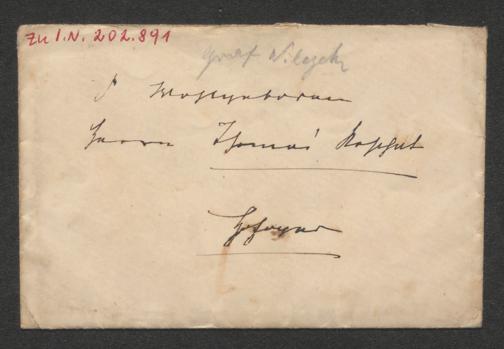 Zu I.N. 202.891
Graf Wilczek
Wohlgeboren
Herrn Thomas Koschat